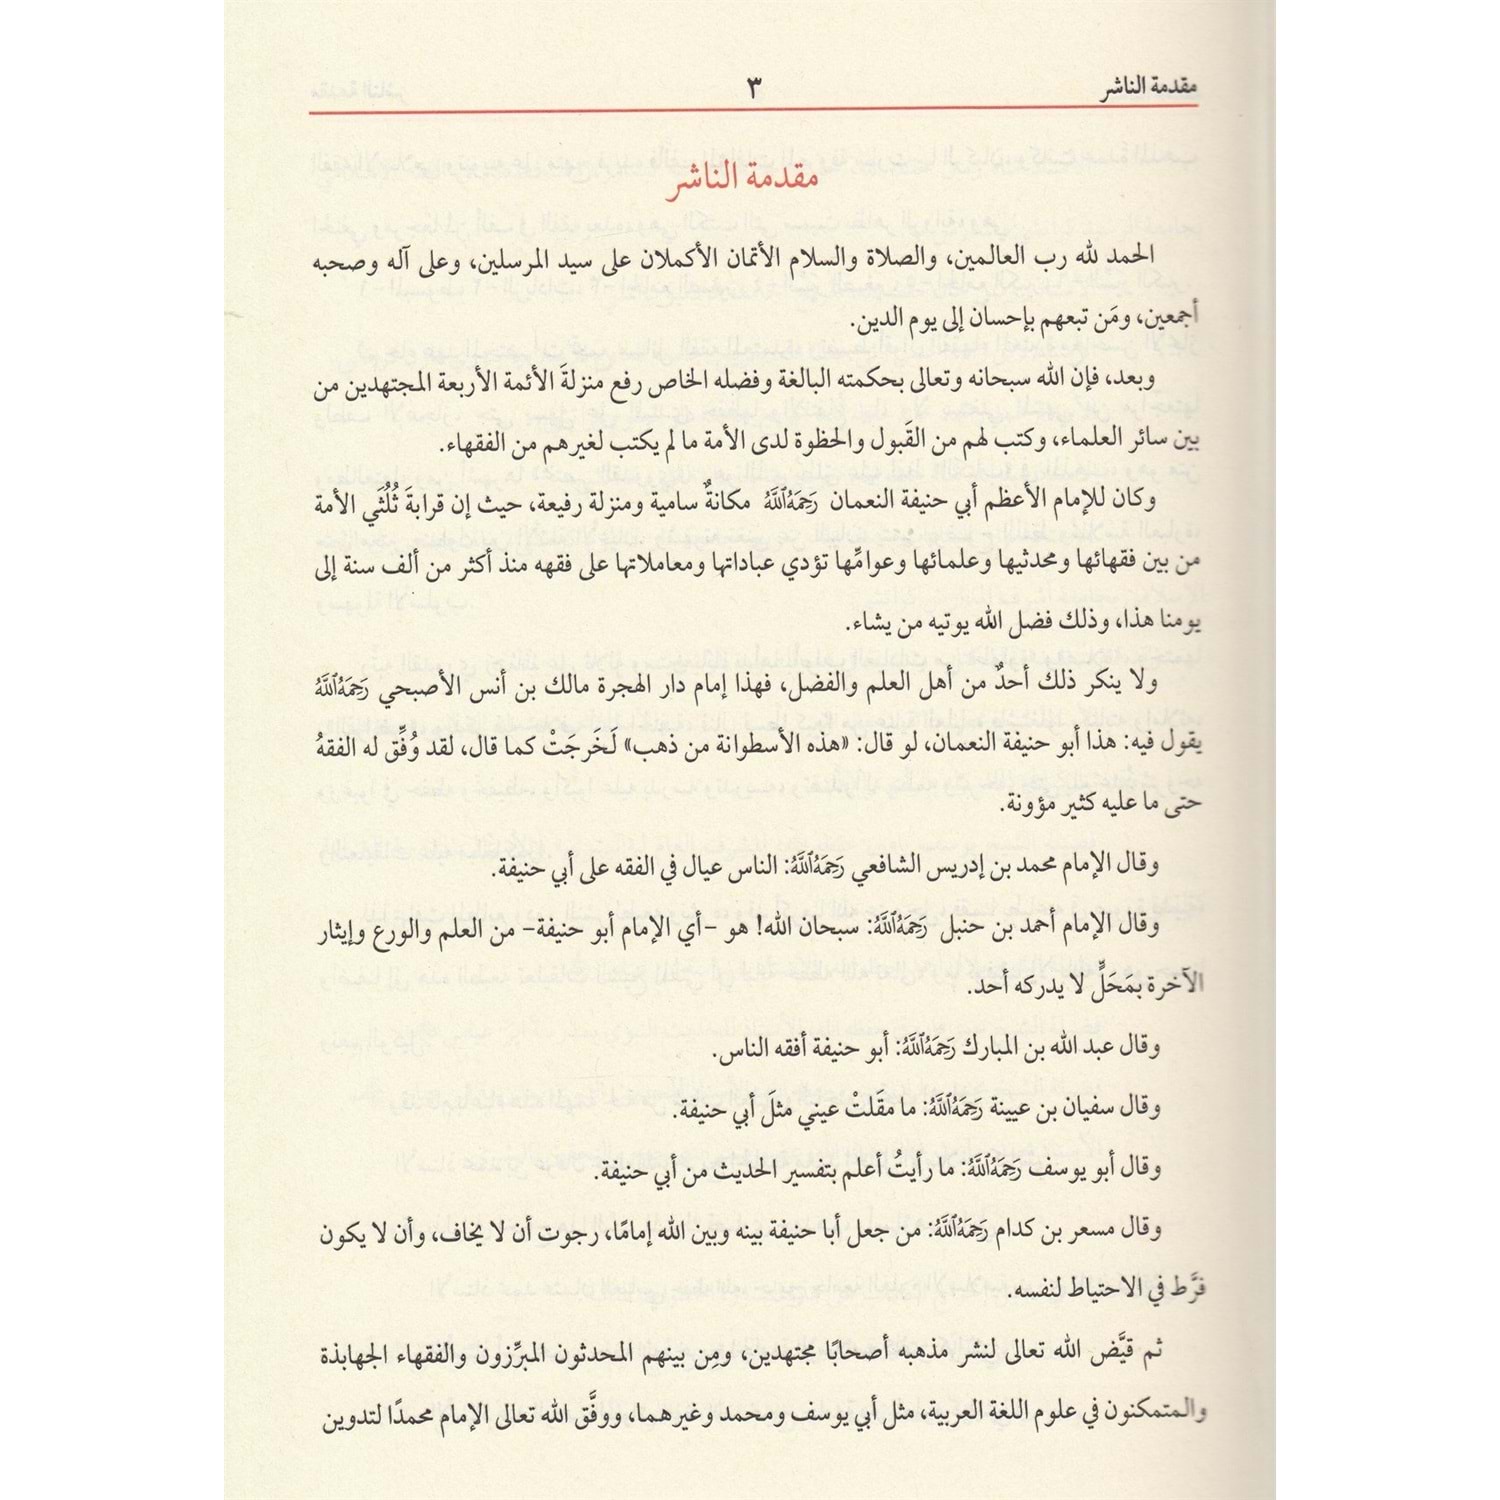 مقدمة الناشر
٣
مقدمة الناشر
الحمد لله رب العالمين، والصلاة والسلام الأتمان الأكملان على سيد المرسلين، وعلى آله وصحبه
أجمعين، ومَن تبعهم بإحسان إلى يوم الدين.
وبعد، فإن الله سبحانه وتعالى بحكمته البالغة وفضله الخاص رفع منزلةَ الأئمة الأربعة المجتهدين من
بين سائر العلماء، وكتب لهم من القَبول والحظوة لدى الأمة ما لم يكتب لغيرهم من الفقهاء.
وكان للإمام الأعظم أبي حنيفة النعمان رَحِمَهُ ٱللَّهُ مكانةٌ سامية ومنزلة رفيعة، حيث إن قرابةَ ثُلُثَي الأمة
من بين فقهائها ومحدثيها وعلمائها وعوامِّها تؤدي عباداتها ومعاملاتها على فقهه منذ أكثر من ألف سنة إلى
يومنا هذا، وذلك فضل الله يوتيه من يشاء.
ولا ينكر ذلك أحدٌ من أهل العلم والفضل، فهذا إمام دار الهجرة مالك بن أنس الأصبحي رَحِمَهُ ٱللَّهُ
يقول فيه: هذا أبو حنيفة النعمان، لو قال: «هذه الأسطوانة من ذهب» لَخَرجَتْ كما قال، لقد وُفِّق له الفقهُ
حتى ما عليه كثير مؤونة.
وقال الإمام محمد بن إدريس الشافعي رَحِمَهُ ٱللَّهُ: الناس عيال في الفقه على أبي حنيفة.
وقال الإمام أحمد بن حنبل رَحِمَهُ ٱللَّهُ: سبحان الله! هو -أي الإمام أبو حنيفة- من العلم والورع وإيثار
الآخرة بمَحَلٍّ لا يدركه أحد.
وقال عبد الله بن المبارك رَحِمَهُ ٱللَّهُ: أبو حنيفة أفقه الناس.
وقال سفيان بن عيينة رَحِمَهُ ٱللَّهُ: ما مقَلتْ عيني مثلَ أبي حنيفة.
وقال أبو يوسف رَحِمَهُ ٱللَّهُ: ما رأيتُ أعلم بتفسير الحديث من أبي حنيفة.
وقال مسعر بن كدام رَحِمَهُ ٱللَّهُ: من جعل أبا حنيفة بينه وبين الله إمامًا، رجوت أن لا يخاف، وأن لا يكون
فرَّط في الاحتياط لنفسه.
ثم قيَّض الله تعالى لنشر مذهبه أصحابًا مجتهدين، ومِن بينهم المحدثون المبرِّزون والفقهاء الجهابذة
والمتمكنون في علوم اللغة العربية، مثل أبي يوسف ومحمد وغيرهما، ووفَّق الله تعالى الإمام محمدًا لتدوين